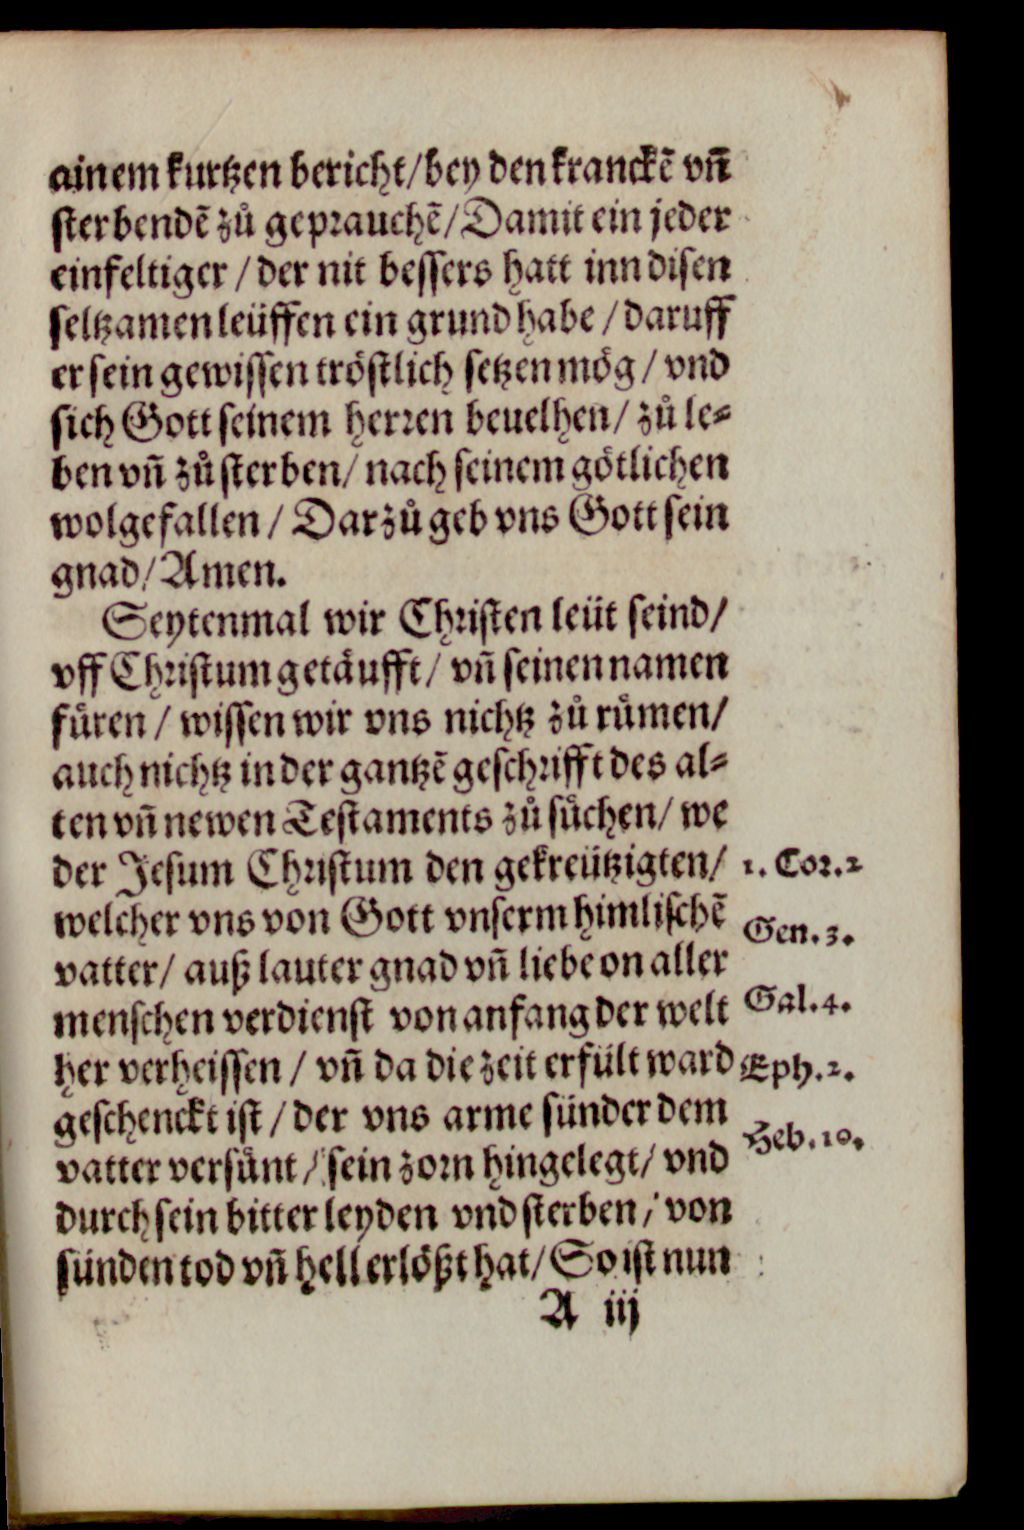 ainem kurtzen bericht/bey den kranckē vñ
sterbendē zů geprauchē/Damit ein jeder
einfeltiger/der nit bessers hatt inn disen
seltzamen leüffen ein grund habe/daruff
er sein gewissen tröstlich setzen mög/vnd
sich Gott seinem herren beuelhen/zů le⸗
ben vñ zů sterben/nach seinem götlichen
wolgefallen/Darzů geb vns Gott sein
gnad/Amen.
Seytenmal wir Christen leüt seind/
vff Christum getäufft/vñ seinen namen
füren/wissen wir vns nichtz zů růmen/
auch nichtz in der gantzē geschrifft des al⸗
ten vñ newen Testaments zů sůchen/we
der Jesum Christum den gekreützigten/ 1. Cor. 2
welcher vns von Gott vnserm himlischē
Gen. 3.
vatter/auß lauter gnad vñ liebe on aller
menschen verdienst von anfang der welt Gal. 4.
her verheissen/vñ da die zeit erfült ward Eph. 2.
geschenckt ist/der vns arme sünder dem
Heb. 10.
vatter versünt/sein zorn hingelegt/vnd
durch sein bitter leyden vnd sterben/von
sünden tod vñ hell erlößt hat/So ist nun
A iij